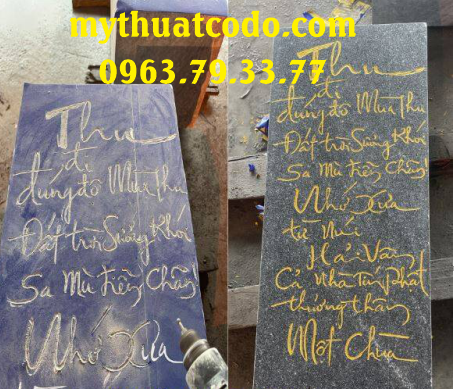 mythuatcodo.com
0963.79.33.77
Thu
đi
đứng đó Mùa Thu
Đất trời Sương Khói
Sa Mù Tiễn Chân
Nhớ Xưa
Thu
đi
đứng đó Mùa Thu
Đất trời Sương Khói
Sa Mù Tiễn Chân
Nhớ Xưa
từ Núi
Hải Vân
Cả Nhà
thương thân
Một Chùa